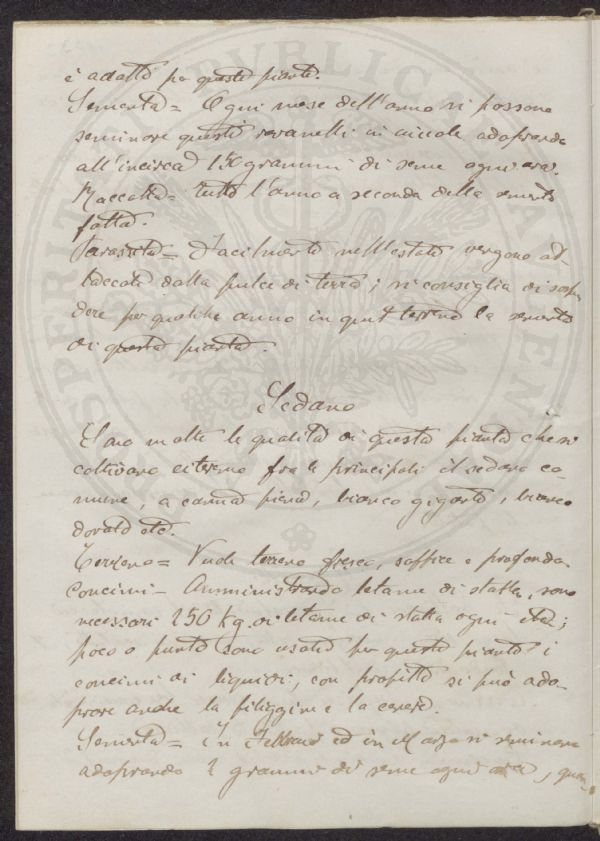 è adatto per queste piante.
Sementa = Ogni mese dell'anno si possono
seminare questi ravanelli in aiuole adoprando
all'incirca 150 grammi di seme ogni ara.
Raccolta = tutto l'anno a seconda della sementa
fatta.
Parassita = Facilmente nell'estate vengono at-
taccate dalla pulce di terra; si consiglia di sospen
dere per qualche anno in quel terreno la sementa
di questa pianta.
Sedano
Sono molte le qualità di questa pianta che si
coltivano fra le principali il sedano co-
mune, a canna piena, bianco gigante, bianco
dorato etc.
Terreno = Vuole terreno fresco, soffice e profondo.
Concimi - Amministrando letame di stalla, sono
necessari 250 Kg. di letame di stalla ogni
poco o punto sono usati per queste piante i
concimi di liquidi, con profitto si può ado-
prare anche la filiggine e la cenere.
Sementa = In Febbraio ed in Marzo si seminano
adoprando 2 grammi di seme ogni ara, quan-
PROSPERITAS PUBLICA